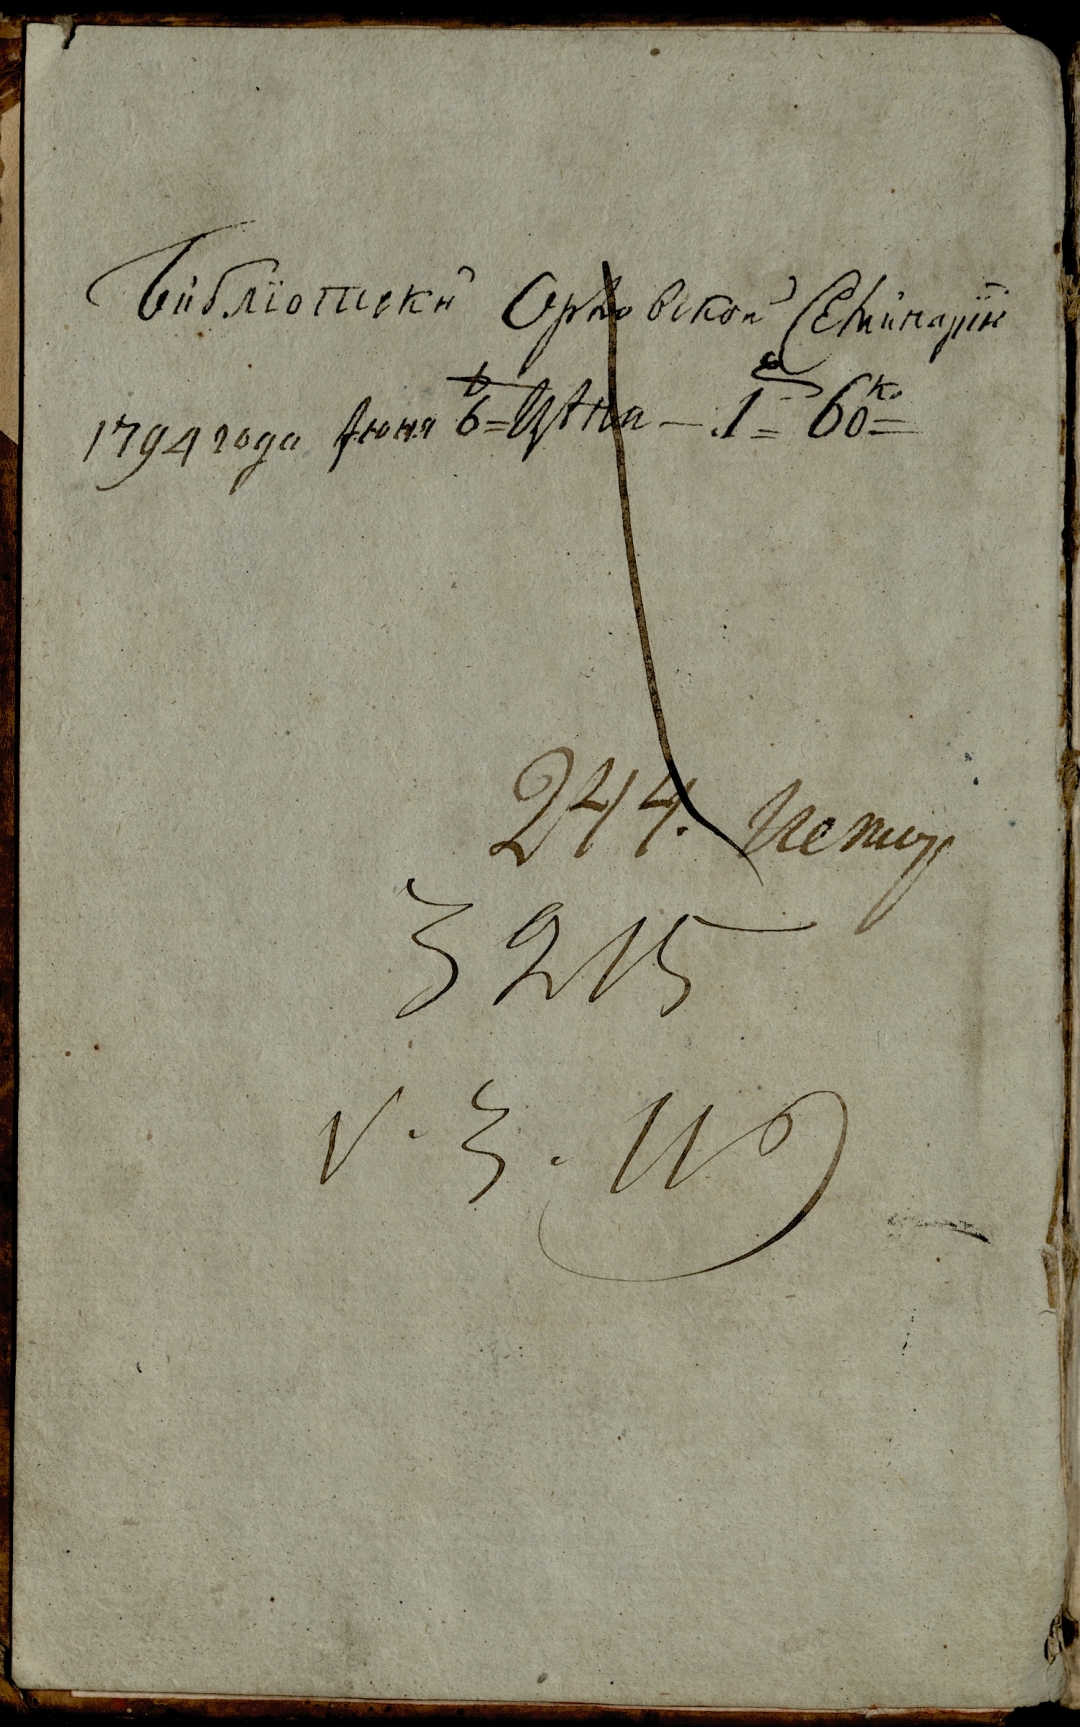 Библіотеки Орловской Семинаріи
1794 года Июня 6 = Цѣна — 1 = 60 ко =
244.
3215
V. 3. 116